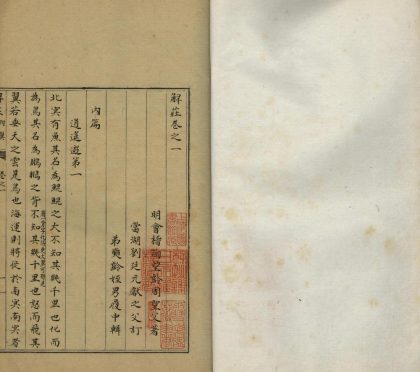 解莊卷之一
明會稽陶望齡周望父著
當湖劉廷元獻之父訂
弟奭齡姪男履中輯
內篇
逍遙遊第一
北冥有魚其名為鯤鯤之大不知其幾千里也化而
為鳥其名為鵬鵬之背不知其幾千里也怒而飛其
翼若垂天之雲是鳥也海運則將徙於南冥南冥者
卷之一